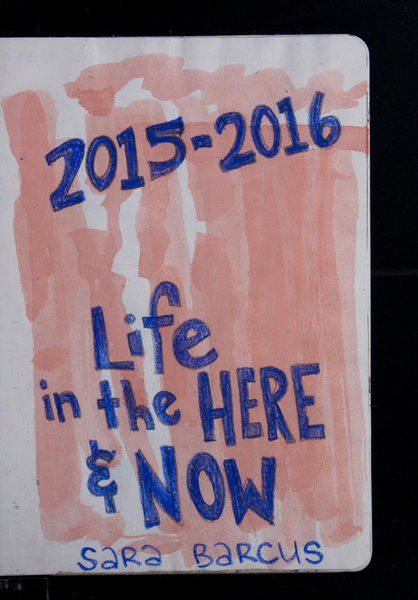 2015-2016
Life
in the HERE
& NOW
Sara Barcus